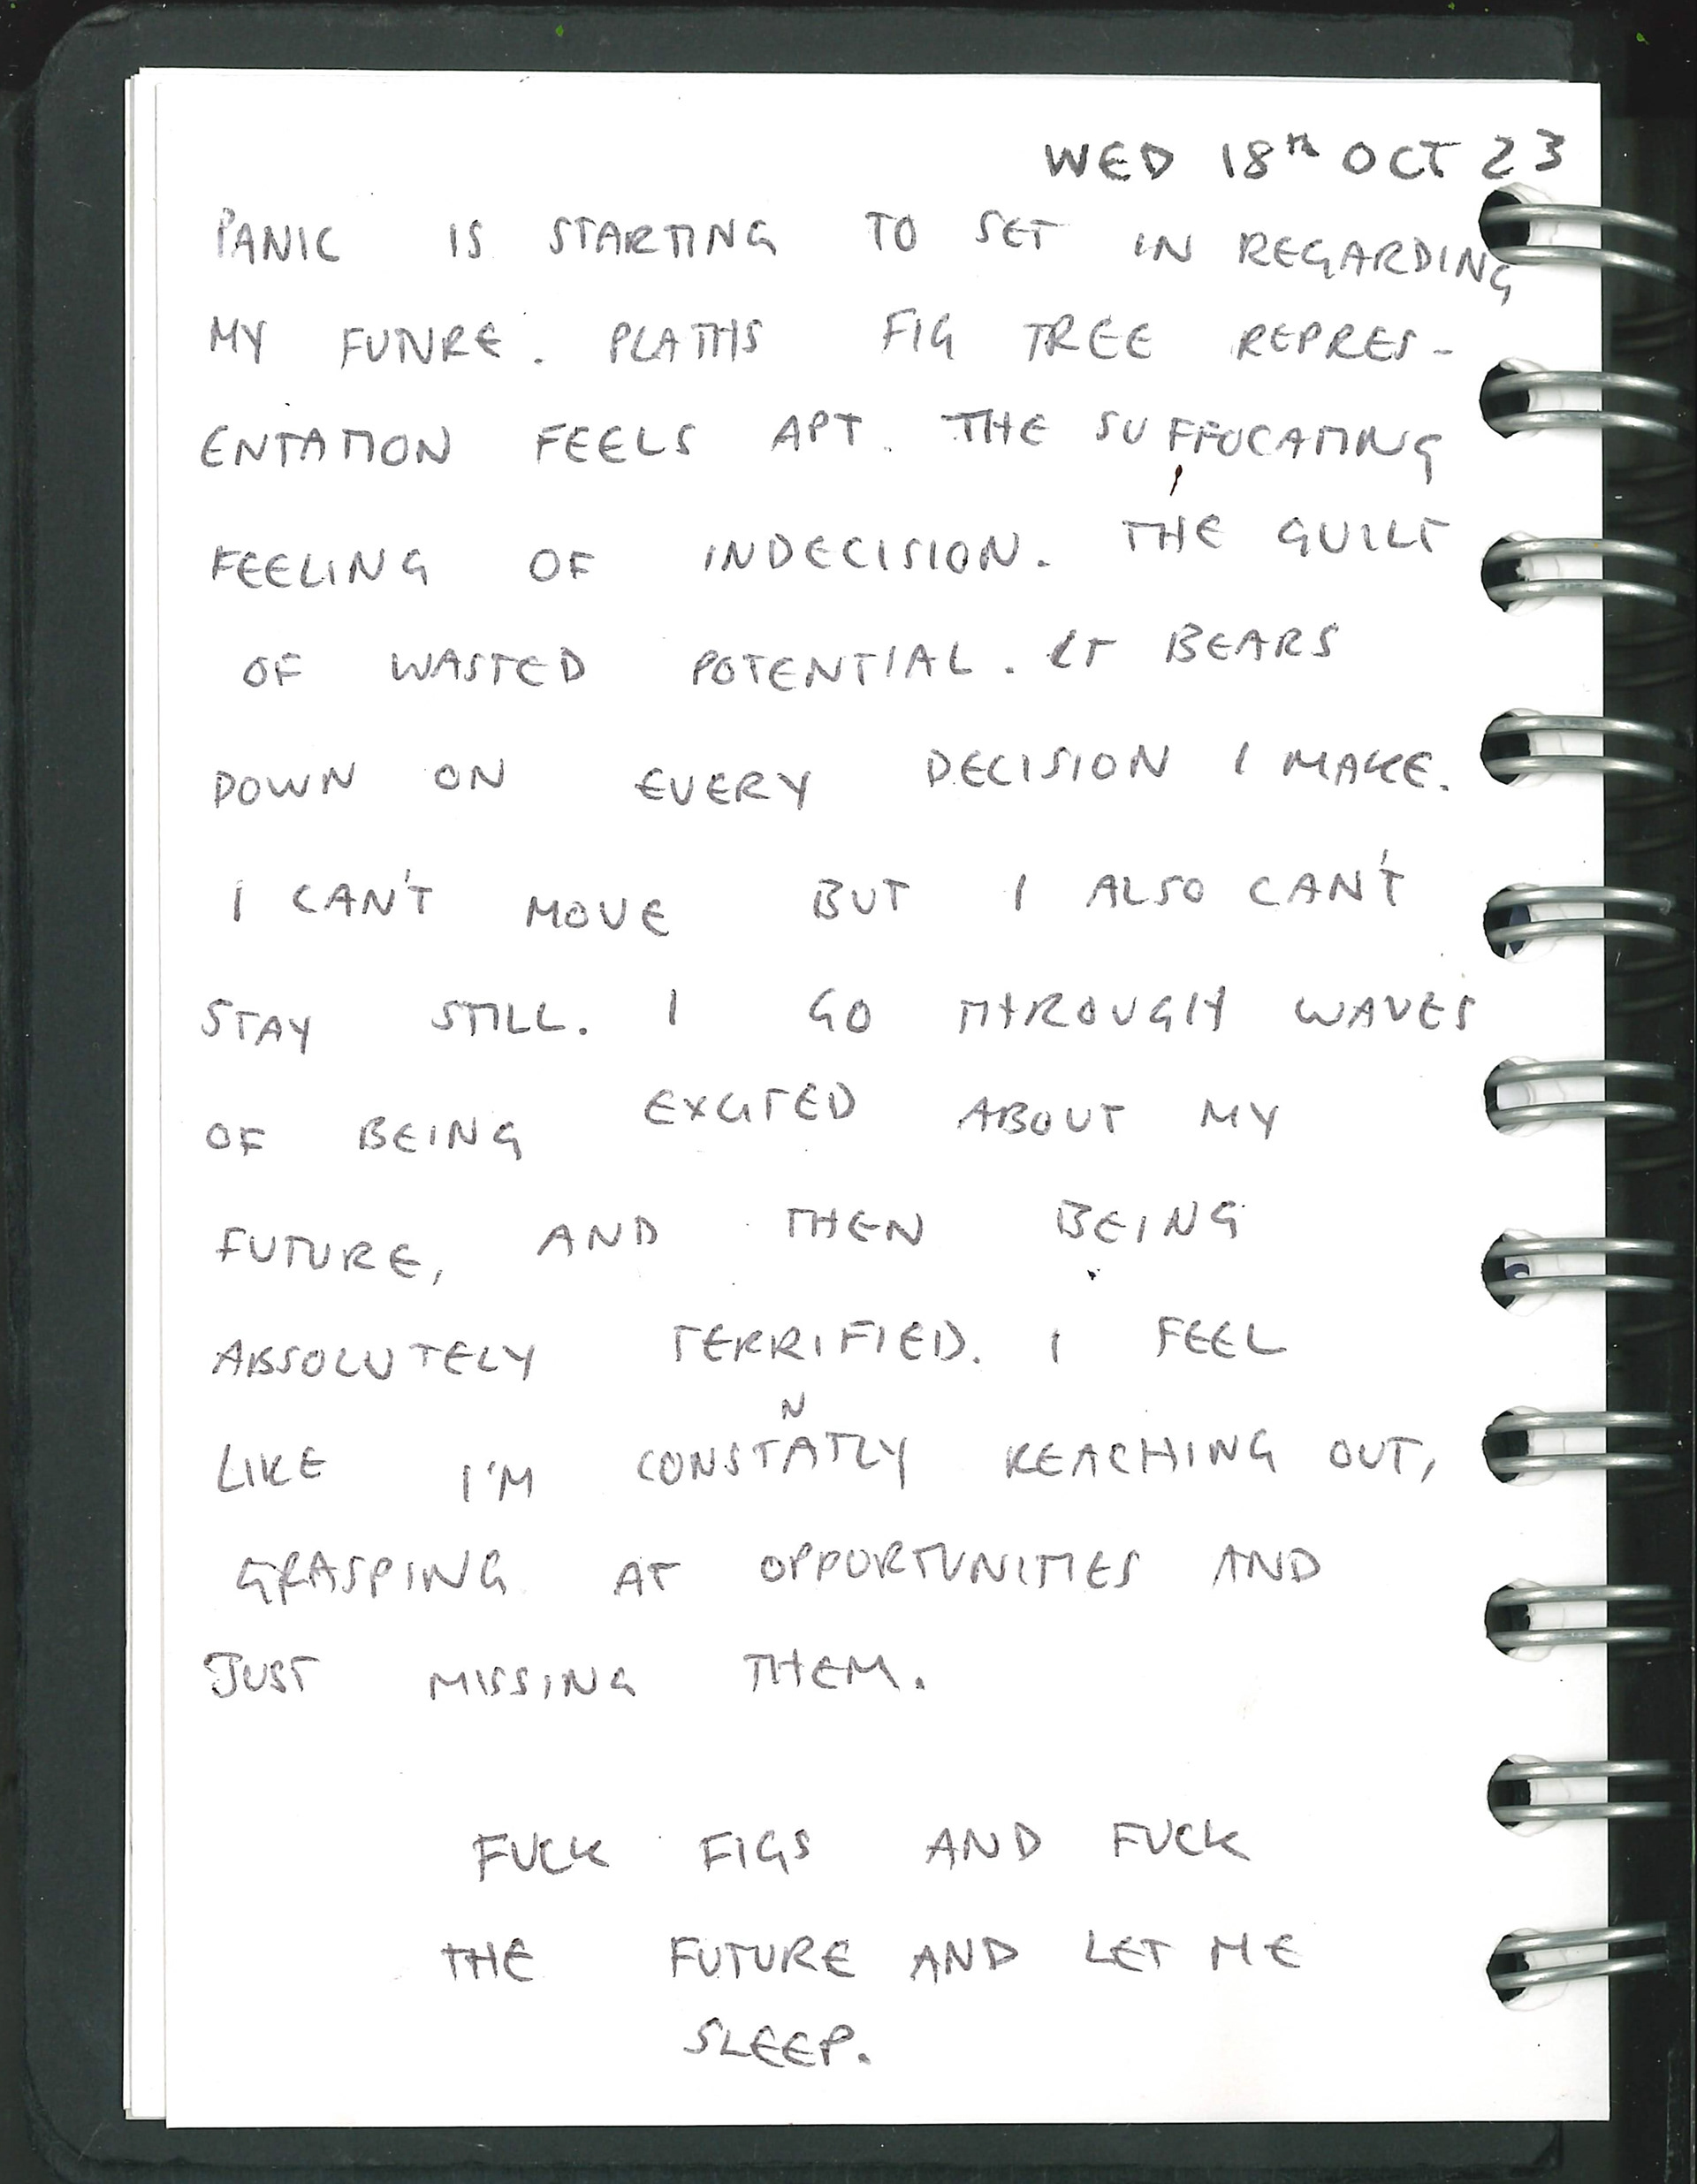 WED 18TH OCT 23
PANIC IS STARTING TO SET IN REGARDING
MY FUTURE. PLATHS FIG TREE REPRES-
ENTATION FEELS APT. THE SUFFOCATING
FEELING OF INDECISION. THE GUILT
OF WASTED POTENTIAL. IT BEARS
DOWN ON EVERY DECISION I MAKE.
I CAN'T MOVE BUT I ALSO CAN'T
STAY STILL. I GO THROUGH WAVES
OF BEING EXCITED ABOUT MY
FUTURE, AND THEN BEING
ABSOLUTELY TERRIFIED. I FEEL
LIKE I'M CONSTANTLY REACHING OUT,
GRASPING AT OPPORTUNITIES AND
JUST MISSING THEM.
FUCK FIGS AND FUCK
THE FUTURE AND LET ME
SLEEP.